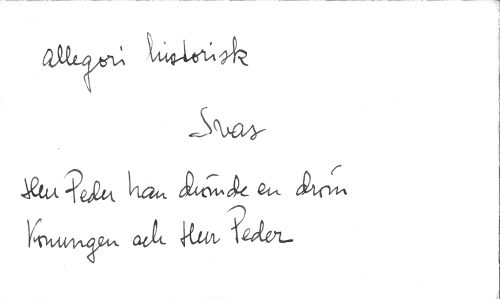 allegori historisk
Svas
Herr Peder han drömde en dröm
Konungen och Herr Peder